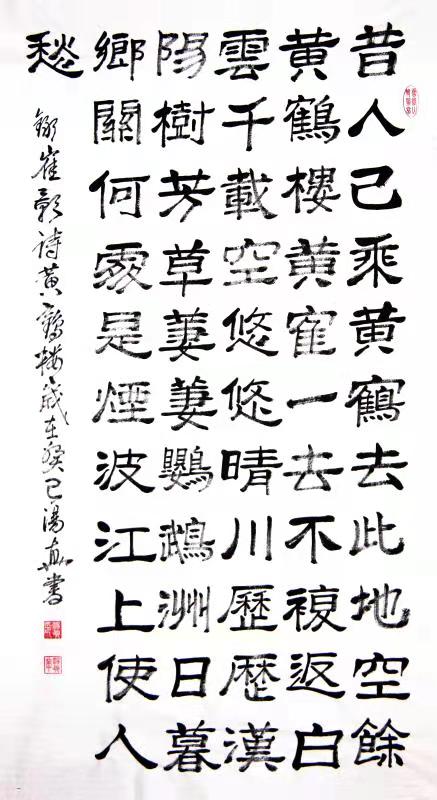 昔人已乘黄鶴去此地空餘
黄鶴樓黄寉一去不複返白
雲千載空悠悠晴川歷歷漢
陽樹芳草萋萋鸚鵡洲日暮
鄉關何處是煙波江上使人
愁
錄崔顥詩黄鶴樓歲在癸巳湯書